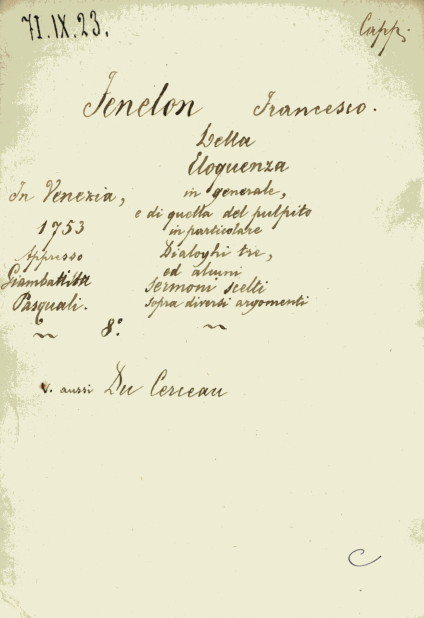 71.IX.23.
Capp.
Fenelon Francesco.
Della
Eloquenza
In Venezia, in generale,
e di quella del pulpito
1753 in particolare
Appresso Dialoghi tre,
ed alcuni
Giambattista sermoni scelti
Pasquali. sopra diversi argomenti
~ 8º. ~
v. aussi Du Cerceau
C